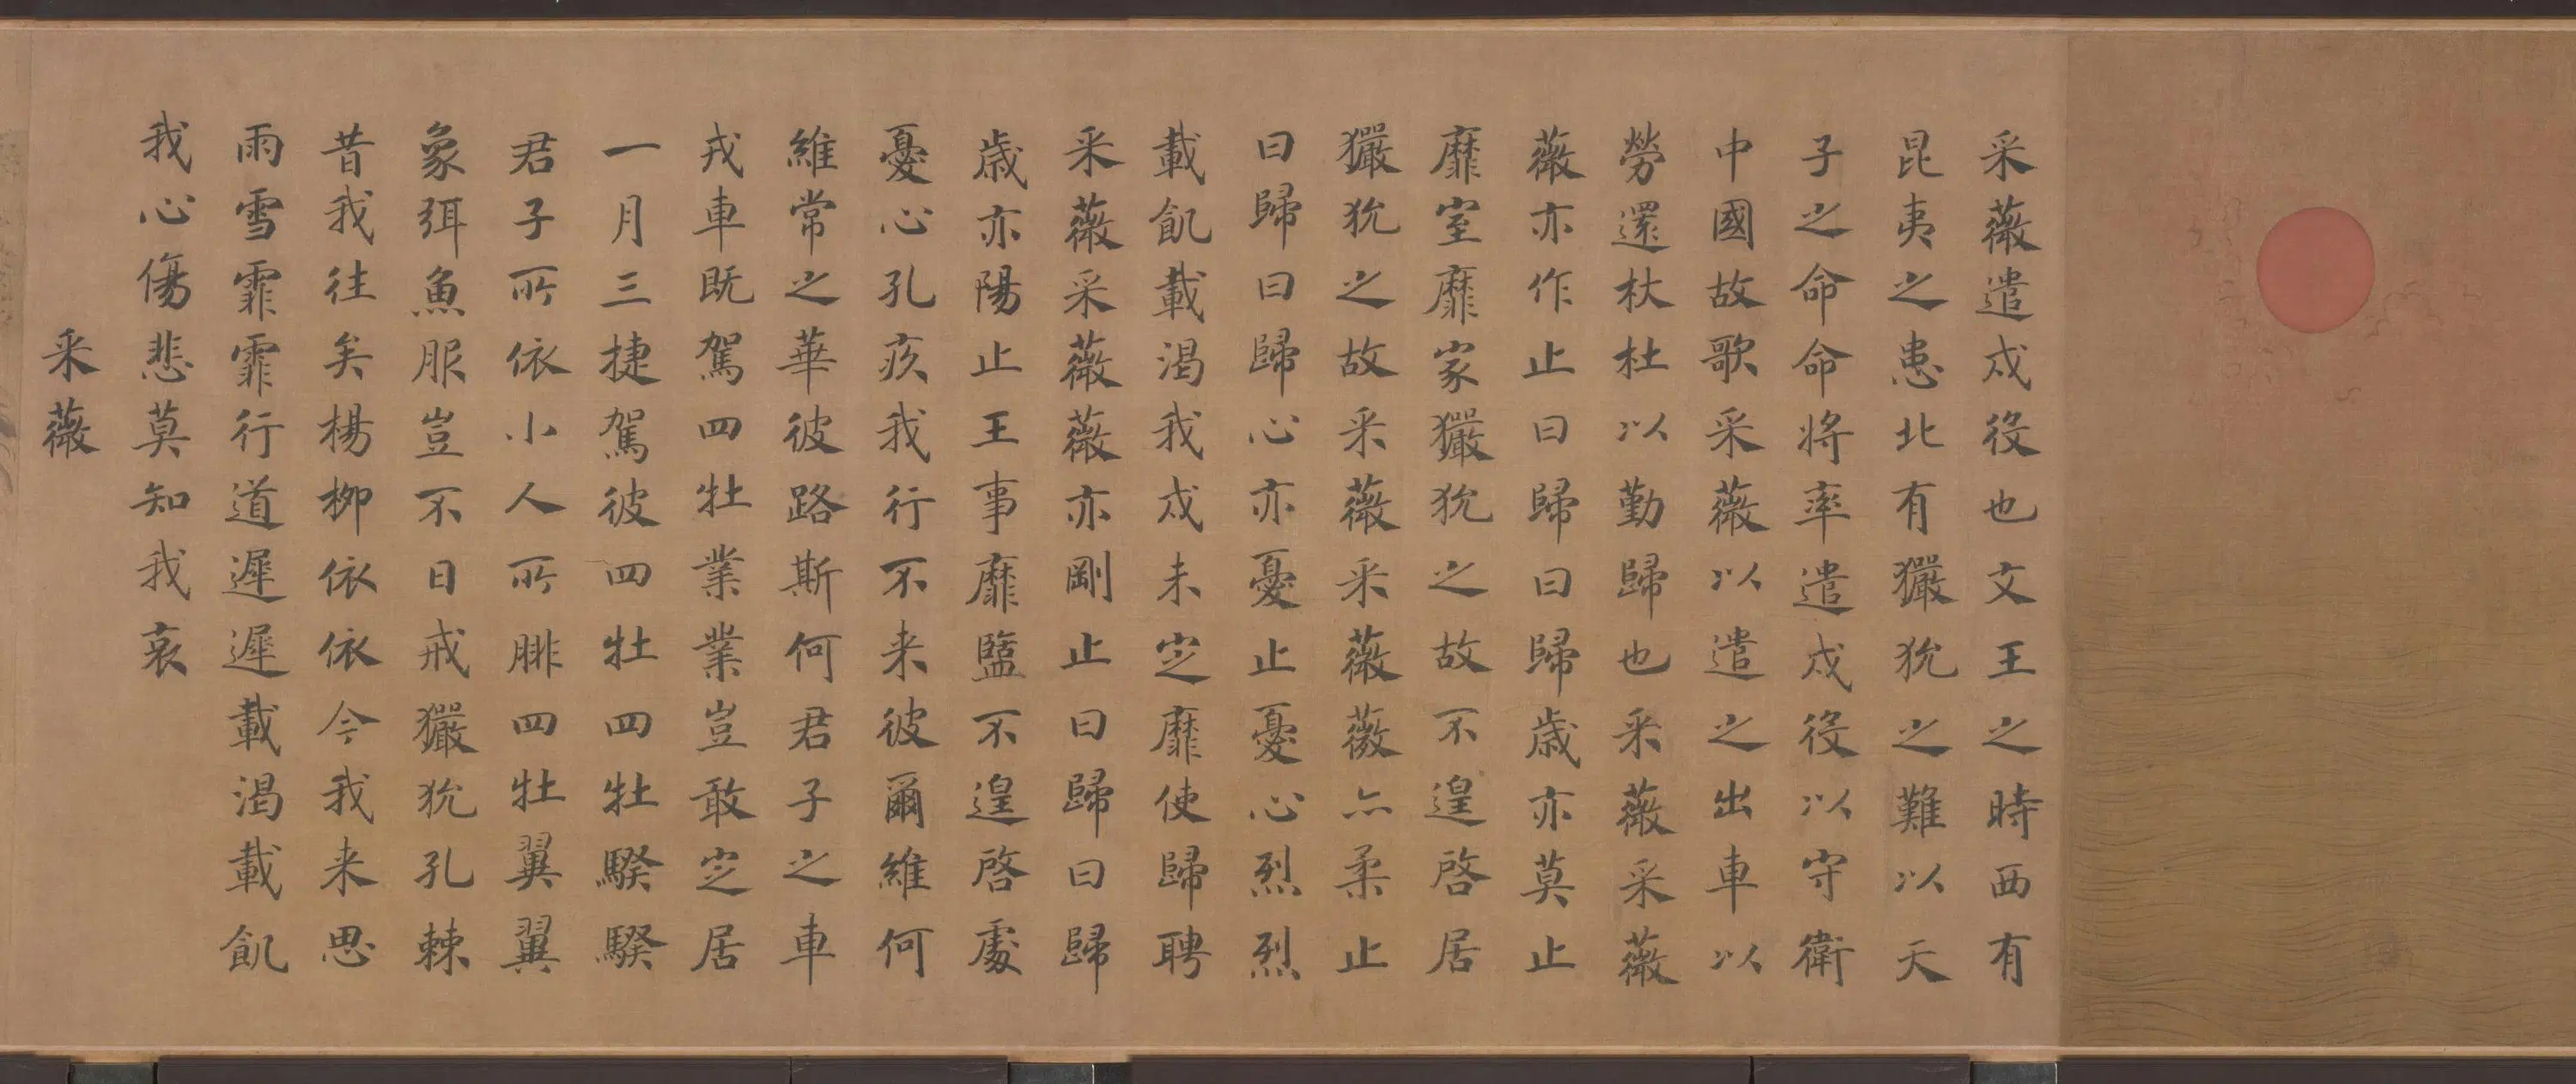 采薇遣戍役也文王之時西有
昆夷之患北有玁狁之難以天
子之命命將率遣戍役以守衛
中國故歌采薇以遣之出車以
勞還杕杜以勤歸也采薇采薇
薇亦作止曰歸曰歸歲亦莫止
靡室靡家玁狁之故不遑啓居
玁狁之故采薇采薇薇亦柔止
曰歸曰歸心亦憂止憂心烈烈
載飢載渴我戍未定靡使歸聘
采薇采薇薇亦剛止曰歸曰歸
歲亦陽止王事靡盬不遑啓處
憂心孔疚我行不来彼爾維何
維常之華彼路斯何君子之車
戎車既駕四牡業業豈敢定居
一月三捷駕彼四牡四牡騤騤
君子所依小人所腓四牡翼翼
象弭魚服豈不日戒玁狁孔棘
昔我往矣楊柳依依今我来思
雨雪霏霏行道遲遲載渴載飢
我心傷悲莫知我哀
采薇